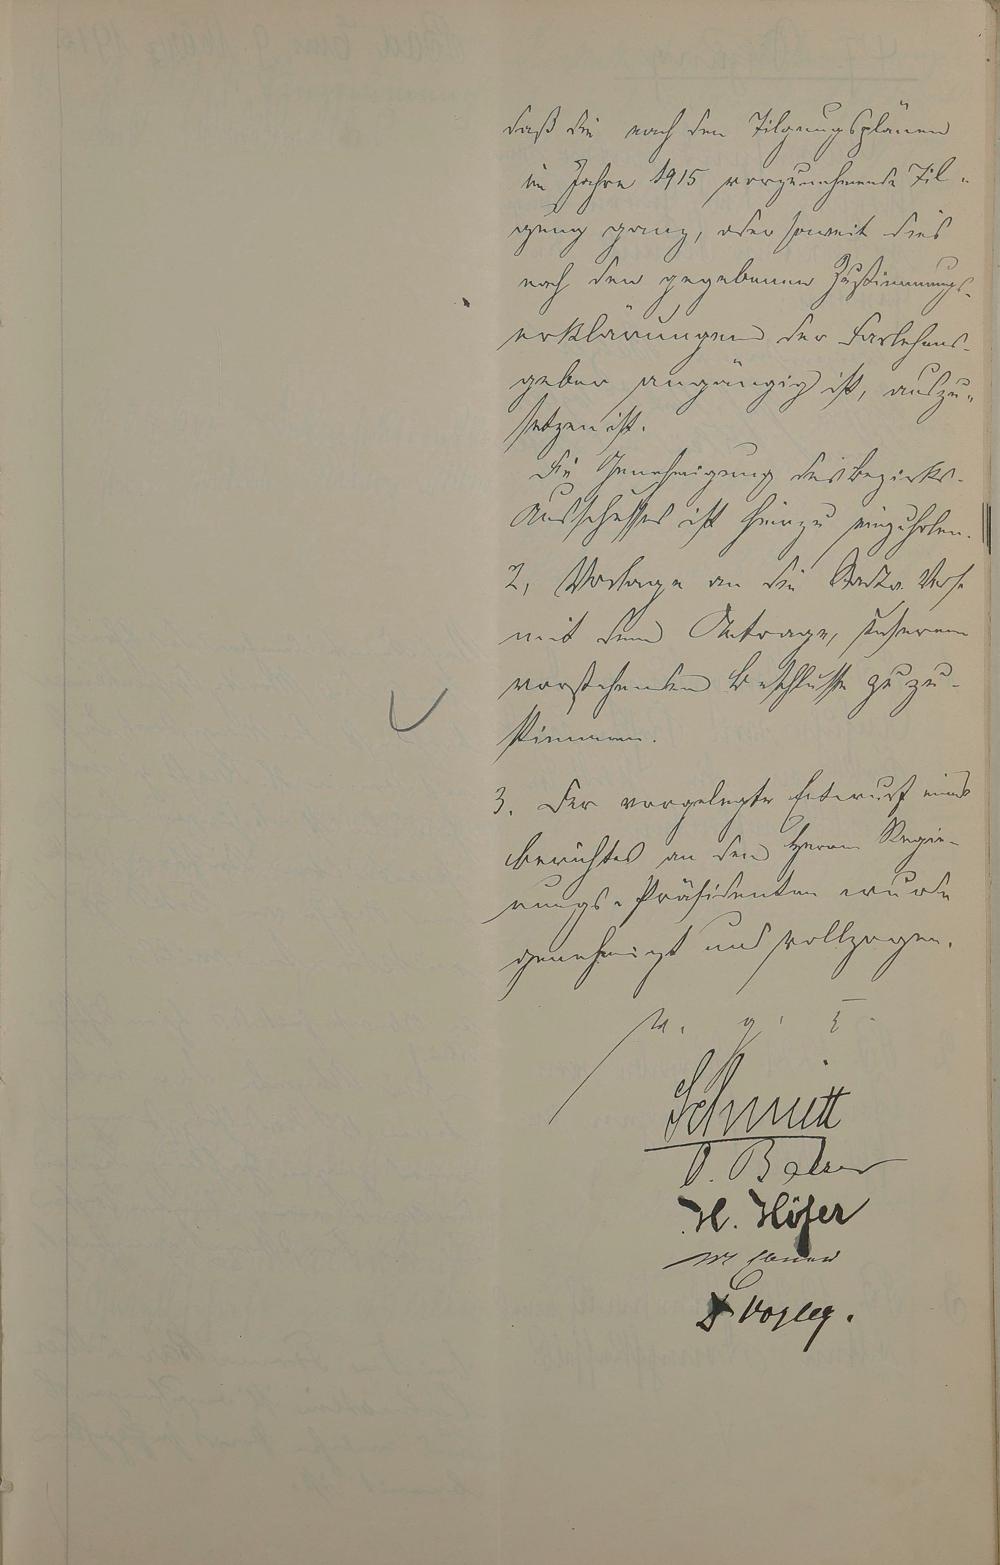 daß die nach den Tilgungsplänen
im Jahre 1915 vorzunehmende Til-
gung ganz, oder soweit dies
nach den gegebenen Zustimmungs-
erklärungen der Darlehens-
geber angängig ist, auszu-
setzen ist.
Die Genehmigung des Bezirks-
Ausschusses ist hierzu einzuholen.
2, Vorlage an die Stadtv. Vers.
mit dem Antrage, unserem
vorstehenden Beschlusse zuzu-
stimmen.
3. Der vorgelegte Entwurf eines
Berichtes an den Herrn Regie-
rungs-Präsidenten wurde
genehmigt und vollzogen.
w. g. o.
Schmitt
Balzer
H. Höfer